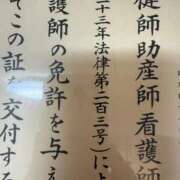 健師助産師看護師
二十三年法律第二百三号)によ
護師の免許を与え
てこの証を交付する